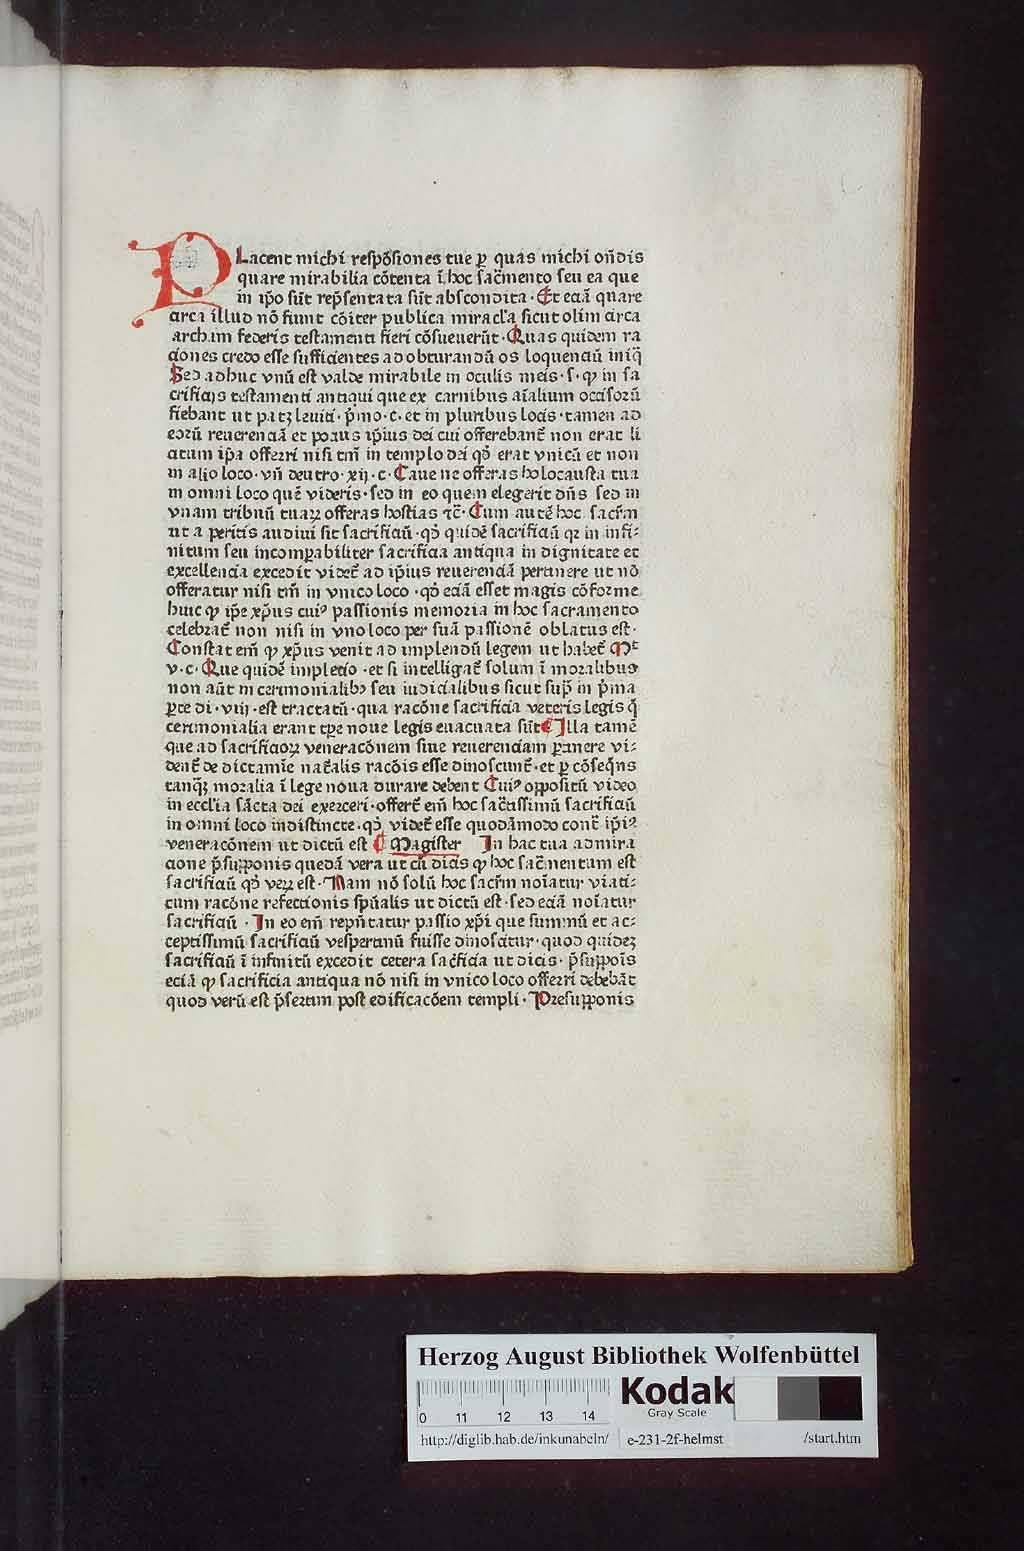 PLacent michi respōsiones tue ꝑ quas michi on̄dis
quare mirabilia cōtenta ī hoc sac̄mento seu ea que
in ip̄o sūt rep̄sentata sūt abscondita · Et eciā quare
circa illud nō fiunt cōiter publica miracl'a sicut olim circa
archam federis testamenti fieri cōsueuerūt · Quas quidem ra
ciones credo esse sufficientes ad obturandū os loquenciū iniq̄
Sed adhuc vnū est valde mirabile in oculis meis · s · ꝙ in sa
crificijs testamenti antiqui que ex carnibus aīalium occisorū
fiebant ut patꝫ leuitici · p̄mo · c · et in pluribus locis · tamen ad
eorū reuerenciā et pocius ip̄ius dei cui offerebant̄ non erat li
citum ip̄a offerri nisi tm̄ in templo dei qd̄ erat vnicū et non
in alio loco · vn̄ deutro · xij · c · Caue ne offeras holocausta tua
in omni loco quē videris · sed in eo quem elegerit dn̄s sed in
vnam tribuū tuaꝝ offeras hostias ⁊c̄ · Cum autē hoc sacr̄m
ut a peritis audiui sit sacrificiū · qd̄ quidē sacrificiū qꝛ in infi⸗
nitum seu incomꝑabiliter sacrificia antiqua in dignitate et
excellencia excedit videt̄ ad ip̄ius reuerenciā pertinere ut nō
offeratur nisi tm̄ in vnico loco · qd̄ eciā esset magis cōforme
huic ꝙ ip̄e xp̄us cuiꝰ passionis memoria in hoc sacramento
celebrat̄ non nisi in vno loco per suā passionē oblatus est ·
Constat em̄ ꝙ xp̄us venit ad implendū legem ut habet̄ Mt
v · c · Que quidē impletio · et si intelligat̄ solum ī moralibus
non aūt in cerimonialibꝫ seu iudicialibus sicut sup̄ in p̄ma
ꝑte di · viij · est tractatū · qua racōne sacrificia veteris legis q̄
cerimonialia erant tꝑe noue legis euacuata sūt ¶ Illa tamē
que ad sacrificioꝝ veneracōnem siue reuerenciam ꝑtinere vi⸗
dent̄ de dictamīe nat̄alis racōis esse dinoscunt̄ · et ꝑ cōseq̄ns
tanqꝫ moralia ī lege noua durare debent Cuiꝰ oppositū video
in eccl'ia sācta dei exerceri · offert̄ em̄ hoc sac̄tissimū sacrificiū
in omni loco indistincte · qd̄ videt̄ esse quodāmodo cont̄ ip̄iꝰ
veneracōnem ut dictū est ¶ Magister In hac tua admira
cione p̄supponis quedā vera ut cū dicis ꝙ hoc sac̄mentum est
sacrificiū qd̄ veꝝ est · Nam nō solū hoc sacr̄m noīatur viati⸗
cum racōne refectionis sp̄ualis ut dictū est · sed eciā noīatur
sacrificiū · In eo em̄ rep̄ntatur passio xp̄i que summū et ac⸗
ceptissimū sacrificiū vespertinū fuisse dinoscitur · quod quideꝫ
sacrificiū ī infinitū excedit cetera sac̄ficia ut dicis · p̄suppoīs
eciā ꝙ sacrificia antiqua nō nisi in vnico loco offerri debebāt
quod verū est p̄sertim post edificacōem templi · Presupponis
Herzog August Bibliothek Wolfenbüttel
Kodak
Gray Scale
0 11 12 13 14
http://diglib.hab.de/inkunabeln/ e-231-2f-helmst /start.htm